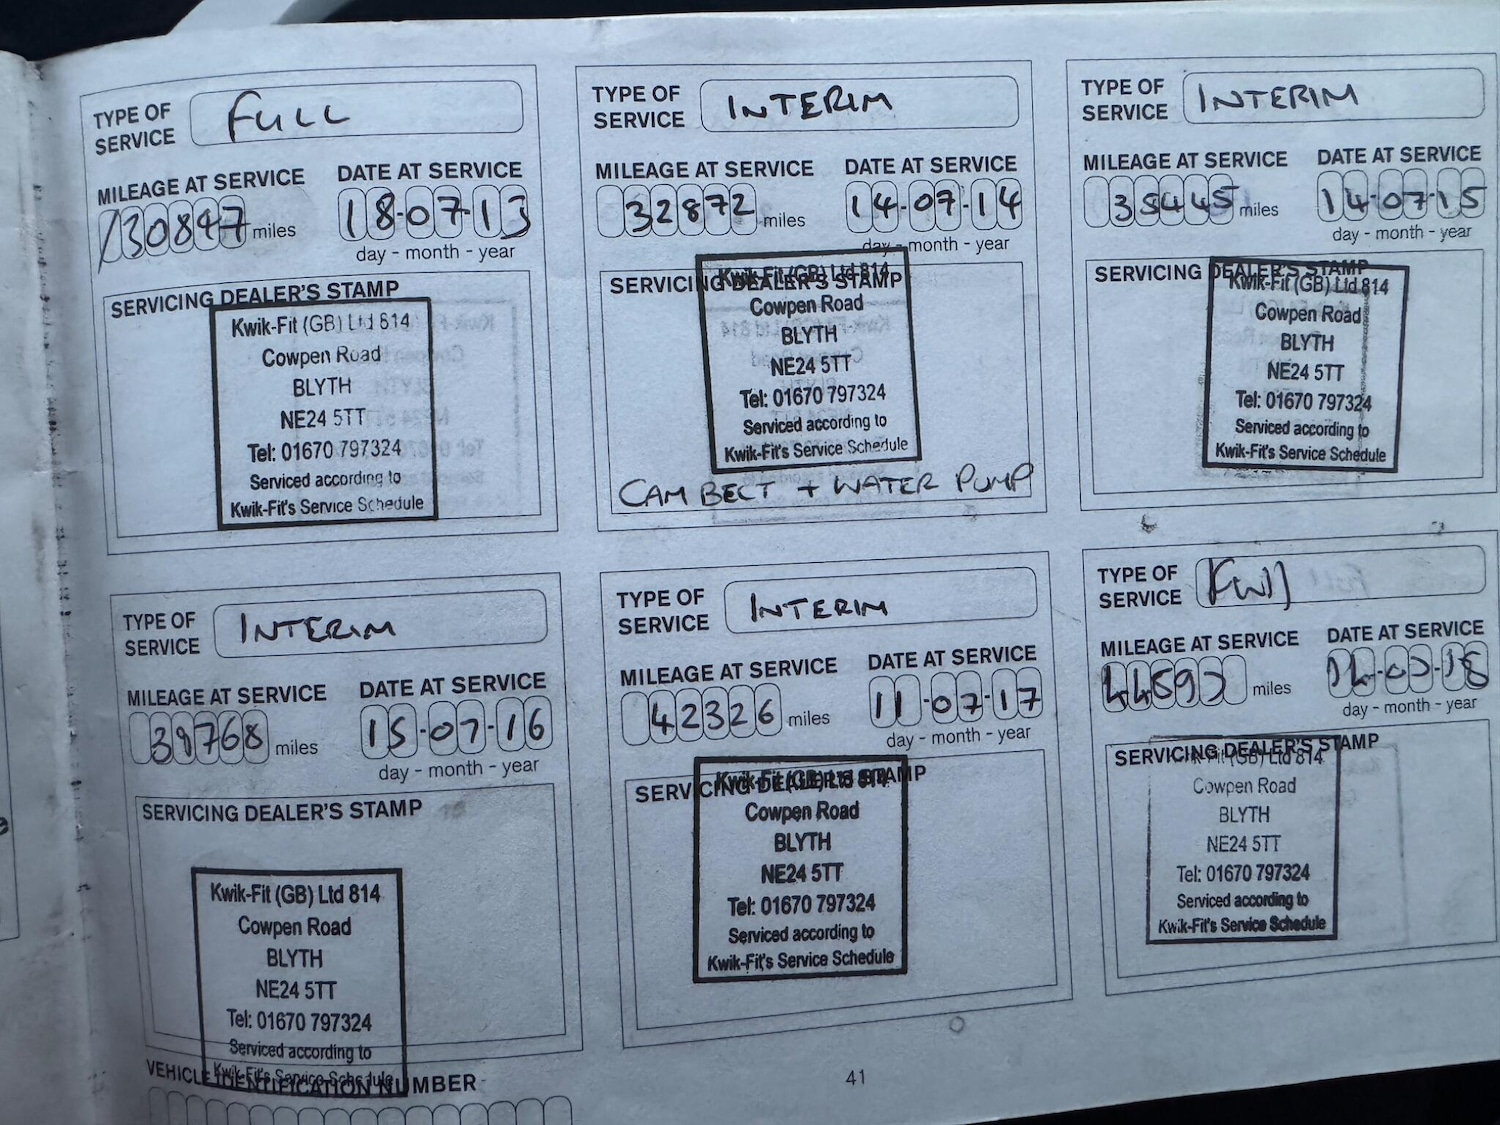 TYPE OF SERVICE FULL
MILEAGE AT SERVICE DATE AT SERVICE
30847 miles 18-07-13
day - month - year
SERVICING DEALER'S STAMP
Kwik-Fit (GB) Ltd 814
Cowpen Road
BLYTH
NE24 5TT
Tel: 01670 797324
Serviced according to
Kwik-Fit's Service Schedule
TYPE OF SERVICE INTERIM
MILEAGE AT SERVICE DATE AT SERVICE
32872 miles 14-07-14
day - month - year
SERVICING DEALER'S STAMP
Kwik-Fit (GB) Ltd 814
Cowpen Road
BLYTH
NE24 5TT
Tel: 01670 797324
Serviced according to
Kwik-Fit's Service Schedule
CAM BELT + WATER PUMP
TYPE OF SERVICE INTERIM
MILEAGE AT SERVICE DATE AT SERVICE
35445 miles 14-07-15
day - month - year
SERVICING DEALER'S STAMP
Kwik-Fit (GB) Ltd 814
Cowpen Road
BLYTH
NE24 5TT
Tel: 01670 797324
Serviced according to
Kwik-Fit's Service Schedule
TYPE OF SERVICE INTERIM
MILEAGE AT SERVICE DATE AT SERVICE
39768 miles 15-07-16
day - month - year
SERVICING DEALER'S STAMP
Kwik-Fit (GB) Ltd 814
Cowpen Road
BLYTH
NE24 5TT
Tel: 01670 797324
Serviced according to
Kwik-Fit's Service Schedule
VEHICLE IDENTIFICATION NUMBER
TYPE OF SERVICE INTERIM
MILEAGE AT SERVICE DATE AT SERVICE
42326 miles 11-07-17
day - month - year
SERVICING DEALER'S STAMP
Kwik-Fit (GB) Ltd 814
Cowpen Road
BLYTH
NE24 5TT
Tel: 01670 797324
Serviced according to
Kwik-Fit's Service Schedule
TYPE OF SERVICE
MILEAGE AT SERVICE DATE AT SERVICE
miles
day - month - year
SERVICING DEALER'S STAMP
Kwik-Fit (GB) Ltd 814
Cowpen Road
BLYTH
NE24 5TT
Tel: 01670 797324
Serviced according to
Kwik-Fit's Service Schedule
41